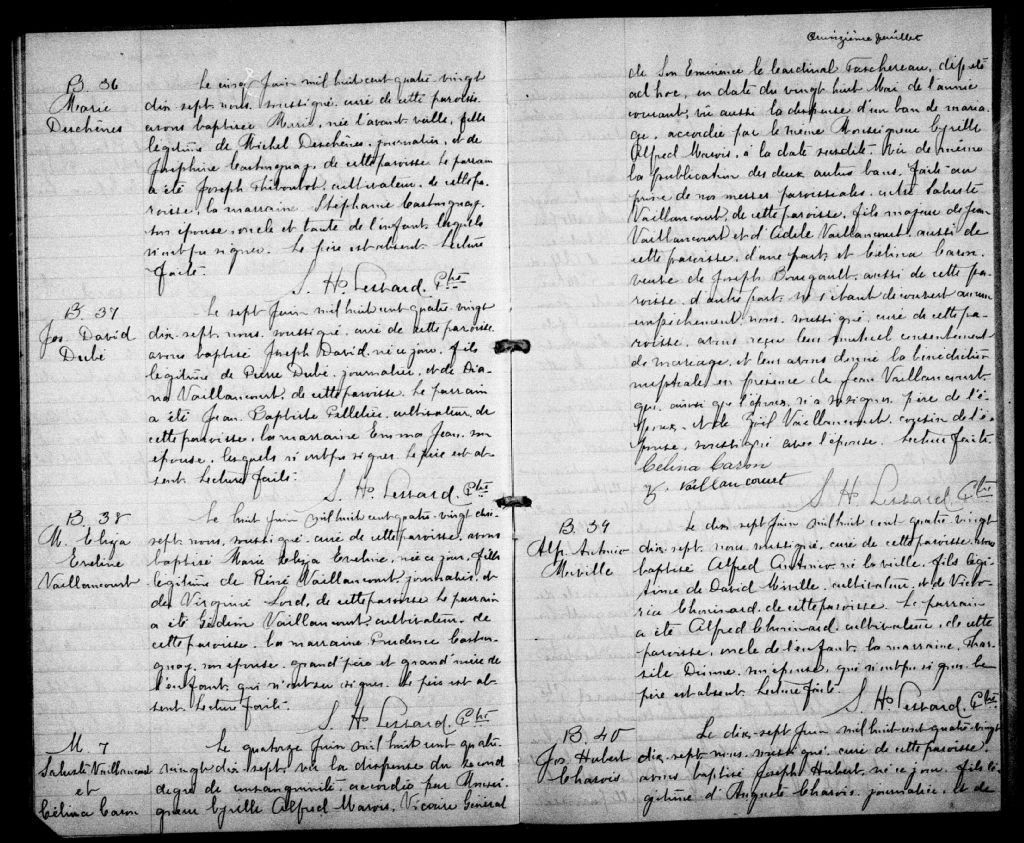 B. 36
Marie
Deschênes
Le onze Juin mil huit cent quatre-vingt
dix-sept nous, soussigné, curé de cette paroisse
avons baptisé Marie, née l'avant-veille, fille
légitime de Michel Deschênes, journalier, et de
Joséphine Castonguay, de cette paroisse. Le parrain
a été Joseph Thiboutot, cultivateur, de cette pa-
roisse, la marraine, Stéphanie Castonguay,
son épouse, oncle et tante de l'enfant, lesquels
n'ont pu signer. Le père est absent. Lecture
faite.
S. Ho. Lessard, Ptre
B. 37
Jos. David
Dubé
Le sept Juin mil huit cent quatre-vingt
dix-sept, nous, soussigné, curé de cette paroisse
avons baptisé Joseph David, né ce jour, fils
légitime de Pierre Dubé, journalier, et de Dia-
na Vaillancourt, de cette paroisse. Le parrain
a été Jean-Baptiste Pelletier, cultivateur, de
cette paroisse, la marraine Emma Jean, son
épouse, lesquels n'ont pu signer. Le père est ab-
sent. Lecture faite.
S. Ho. Lessard, Ptre
B. 38
M. Eveline
Vaillancourt
Le huit Juin mil huit cent quatre-vingt dix-
sept, nous, soussigné, curé de cette paroisse, avons
baptisé Marie Eveline, née ce jour, fille
légitime de René Vaillancourt, journalier, et
de Virginie Lord, de cette paroisse. Le parrain
a été Gédéon Vaillancourt, cultivateur, de
cette paroisse, la marraine Prudence Caston-
guay, son épouse, grand'père et grand'mère de
l'enfant, qui n'ont su signer. Le père est ab-
sent. Lecture faite.
S. Ho. Lessard, Ptre
M. 7
Saluste Vaillancourt
et
Célina Caron
Le quatorze Juin mil huit cent quatre-
vingt dix-sept, vu la dispense du second
degré de consanguinité, accordée par Monsei-
gneur Cyrille Alfred Marois, Vicaire Général
feuillet
de Son Eminence le Cardinal Taschereau, député
ad hoc, en date du vingt huit Mai de l'année
courant, vu aussi la dispense d'un ban de maria-
ge, accordée par le même Monseigneur Cyrille
Alfred Marois, à la date susdite. Vu de même
la publication des deux autres bans, faite au
prône de nos messes paroissiales, entre Saluste
Vaillancourt, de cette paroisse, fils majeur de Jean
Vaillancourt et d'Adèle Vaillancourt, aussi de
cette paroisse, d'une part; et Célina Caron,
veuve de Joseph Bourgault, aussi de cette pa-
roisse, d'autre part, ne s'étant découvert aucun
empêchement, nous, soussigné, curé de cette pa-
roisse, avons reçu leur mutuel consentement
de mariage, et leur avons donné la bénédiction
nuptiale en présence de Jean Vaillancourt,
qui, ainsi que l'époux, n'a su signer, père de l'é-
poux, et de Zoïl Vaillancourt, cousin de l'é-
pouse, soussigné avec l'épouse. Lecture faite.
Célina Caron
Z. Vaillancourt
S. Ho. Lessard, Ptre
B. 39
Alf. Antonio
Miville
Le dix-sept Juin mil huit cent quatre-vingt
dix-sept, nous, soussigné, curé de cette paroisse, avons
baptisé Alfred Antonio né la veille, fils légi-
time de David Miville, cultivateur, et de Victo-
ria Chouinard, de cette paroisse. Le parrain
a été Alfred Chouinard, cultivateur, de cette
paroisse, oncle de l'enfant, la marraine, Thar-
sile Dionne, son épouse, qui n'ont pu signer. Le
père est absent. Lecture faite.
S. Ho. Lessard, Ptre
B. 40
Jos. Hubert
Charois
Le dix-sept Juin mil huit cent quatre-vingt
dix-sept, nous, soussigné, curé de cette paroisse,
avons baptisé Joseph Hubert, né ce jour, fils lé-
gitime d'Auguste Charois, journalier, et de